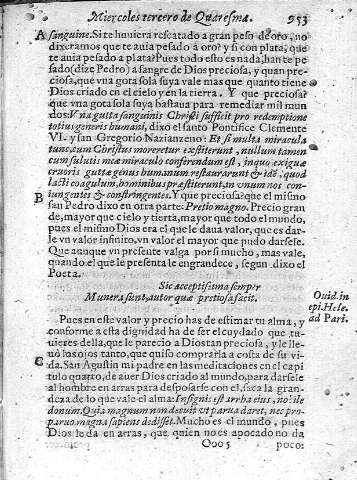 Miercoles tercero de Quaresma. 953
A sanguine. Si te huuiera rescatado a gran peso de oro, no
dixeramos que te auia pesado a oro? y si con plata, que
te auia pesado a plata? Pues todo esto es nada, han te pe
sado (dize Pedro) a sangre de Dios preciosa, y quan pre-
ciosa, que vna gota sola suya vale mas que quanto tiene
Dios criado en el cielo y en la tierra. Y que preciosa?
que vna gota sola suya bastaua para remediar mil mun
dos: Vna gutta sanguinis Christi sufficit pro redemptione
totius generis humani, dixo el santo Pontifice Clemente
VI. y san Gregorio Nazianzeno: Et si multa miracula
tunc, cum Christus moreretur extiterunt, nullum tamen
cum salutis meæ miraculo conferendum est, in quo exiguæ
cruoris guttæ genus humanum restaurarunt & idē, quod
lacti coagulum, hominibus præstiterunt, in vnum nos con-
iungentes & constringentes. Y que preciosa? que el mismo
B san Pedro dixo en otra parte: Pretio magno. Precio gran
de, mayor que cielo y tierra, mayor que todo el mundo,
pues el mismo Dios era el que le daua valor, que es dar-
le vn valor infinito, vn valor el mayor que pudo darsele.
Que aunque vn presente valga por si mucho, mas vale,
quando el que le presenta le engrandece, segun dixo el
Poeta.
Sic acceptissima semper
Munera sunt, autor quæ pretiosa facit.
Ouid. in
epi. Hele.
ad Pari.
Pues en este valor y precio has de estimar tu alma, y
conforme a esta dignidad ha de ser el cuydado que tu-
uieres della, que le parecio a Dios tan preciosa, y le lle-
uò los ojos tanto, que quiso comprarla a costa de su vi-
C da. San Agustin mi padre en las meditaciones en el capi
tulo quarto, de auer Dios criado al mundo, para darsele
al hombre en arras para desposarse con el, saca la gran-
deza de lo que vale el alma: Insignis est arrha eius, nobile
donum. Quia magnum non decuit vt parua daret, nec pro-
paruo magna sapiens dedisset. Mucho es el mundo, pues
Dios le da en arras, que quien no es apocado no da
Ooo 5 poco: